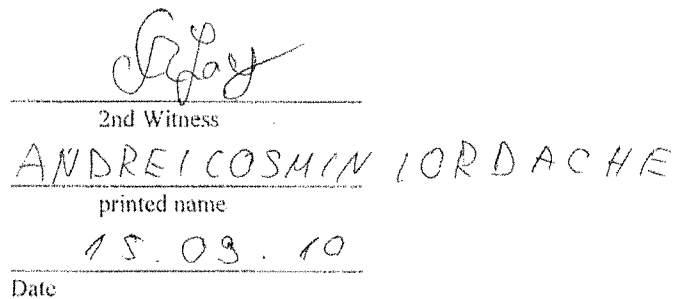 2nd Witness
ANDREI COSMIN IORDACHE
printed name
15.09.10
Date